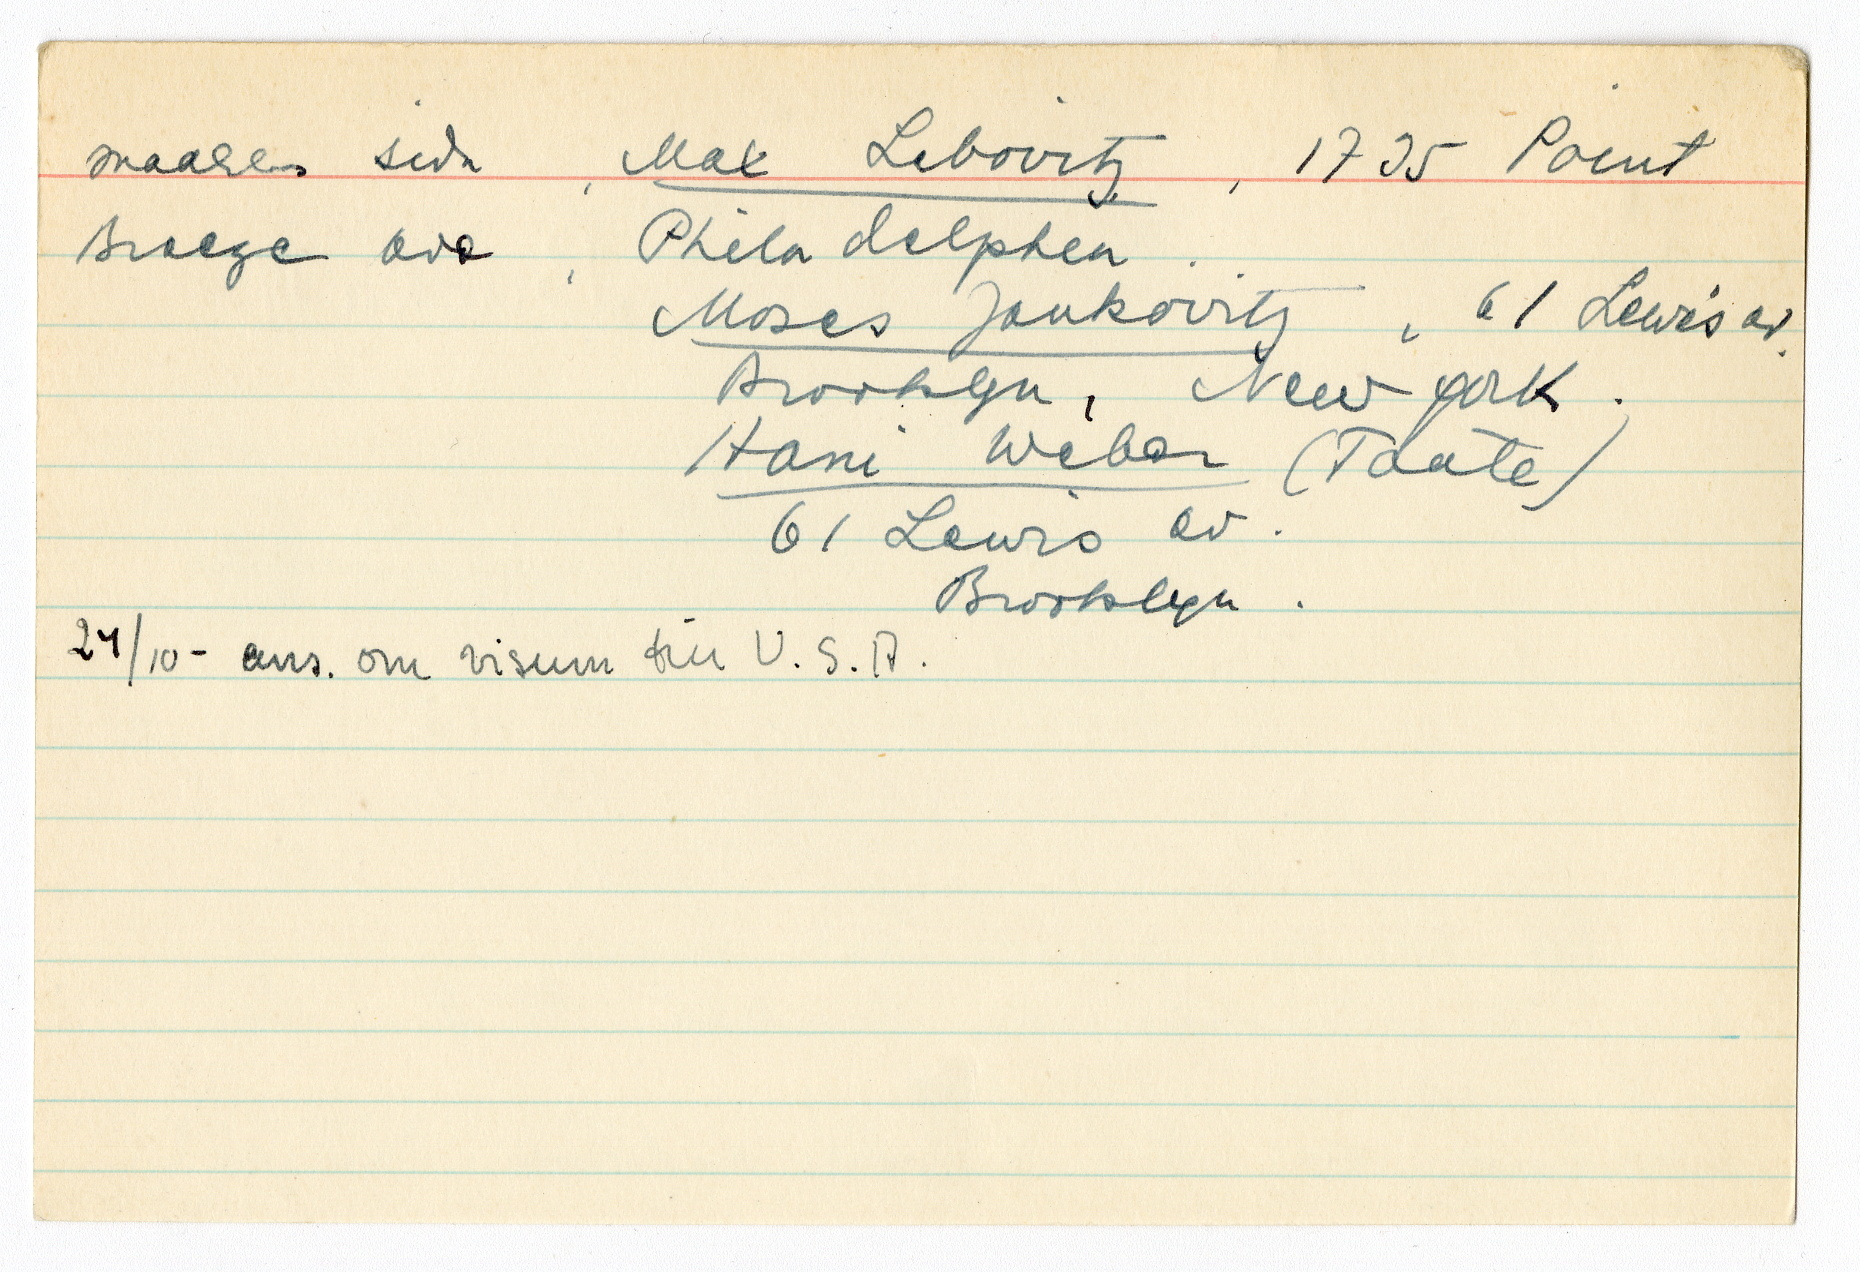 sida, Max Lebovitz, 1735 Point
Breeze ave, Philadelphea.
Moses Jankovitz, 61 Lewis av.
Brooklyn, New york.
Hani Weber (Taate)
61 Lewis av.
Brooklyn.
24/10- ans. om visum till U.S.A.